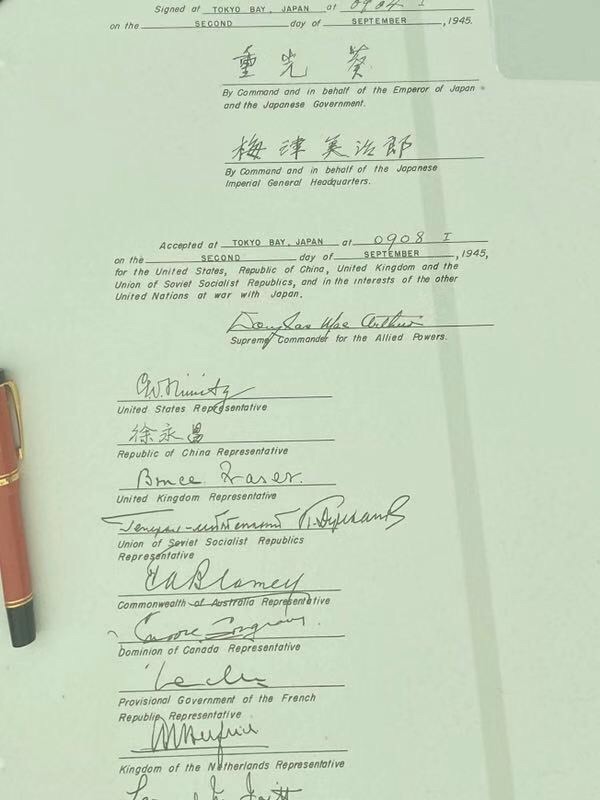 Signed at TOKYO BAY, JAPAN at 0904 I
on the SECOND day of SEPTEMBER, 1945.
重光葵
By Command and in behalf of the Emperor of Japan
and the Japanese Government.
梅津美治郎
By Command and in behalf of the Japanese
Imperial General Headquarters.
Accepted at TOKYO BAY, JAPAN at 0908 I
on the SECOND day of SEPTEMBER, 1945,
for the United States, Republic of China, United Kingdom and the
Union of Soviet Socialist Republics, and in the interests of the other
United Nations at war with Japan.
Douglas MacArthur
Supreme Commander for the Allied Powers.
C.W. Nimitz
United States Representative
徐永昌
Republic of China Representative
Bruce Fraser.
United Kingdom Representative
Union of Soviet Socialist Republics
Representative
T.A. Blamey
Commonwealth of Australia Representative
Dominion of Canada Representative
Provisional Government of the French
Republic Representative
Kingdom of the Netherlands Representative